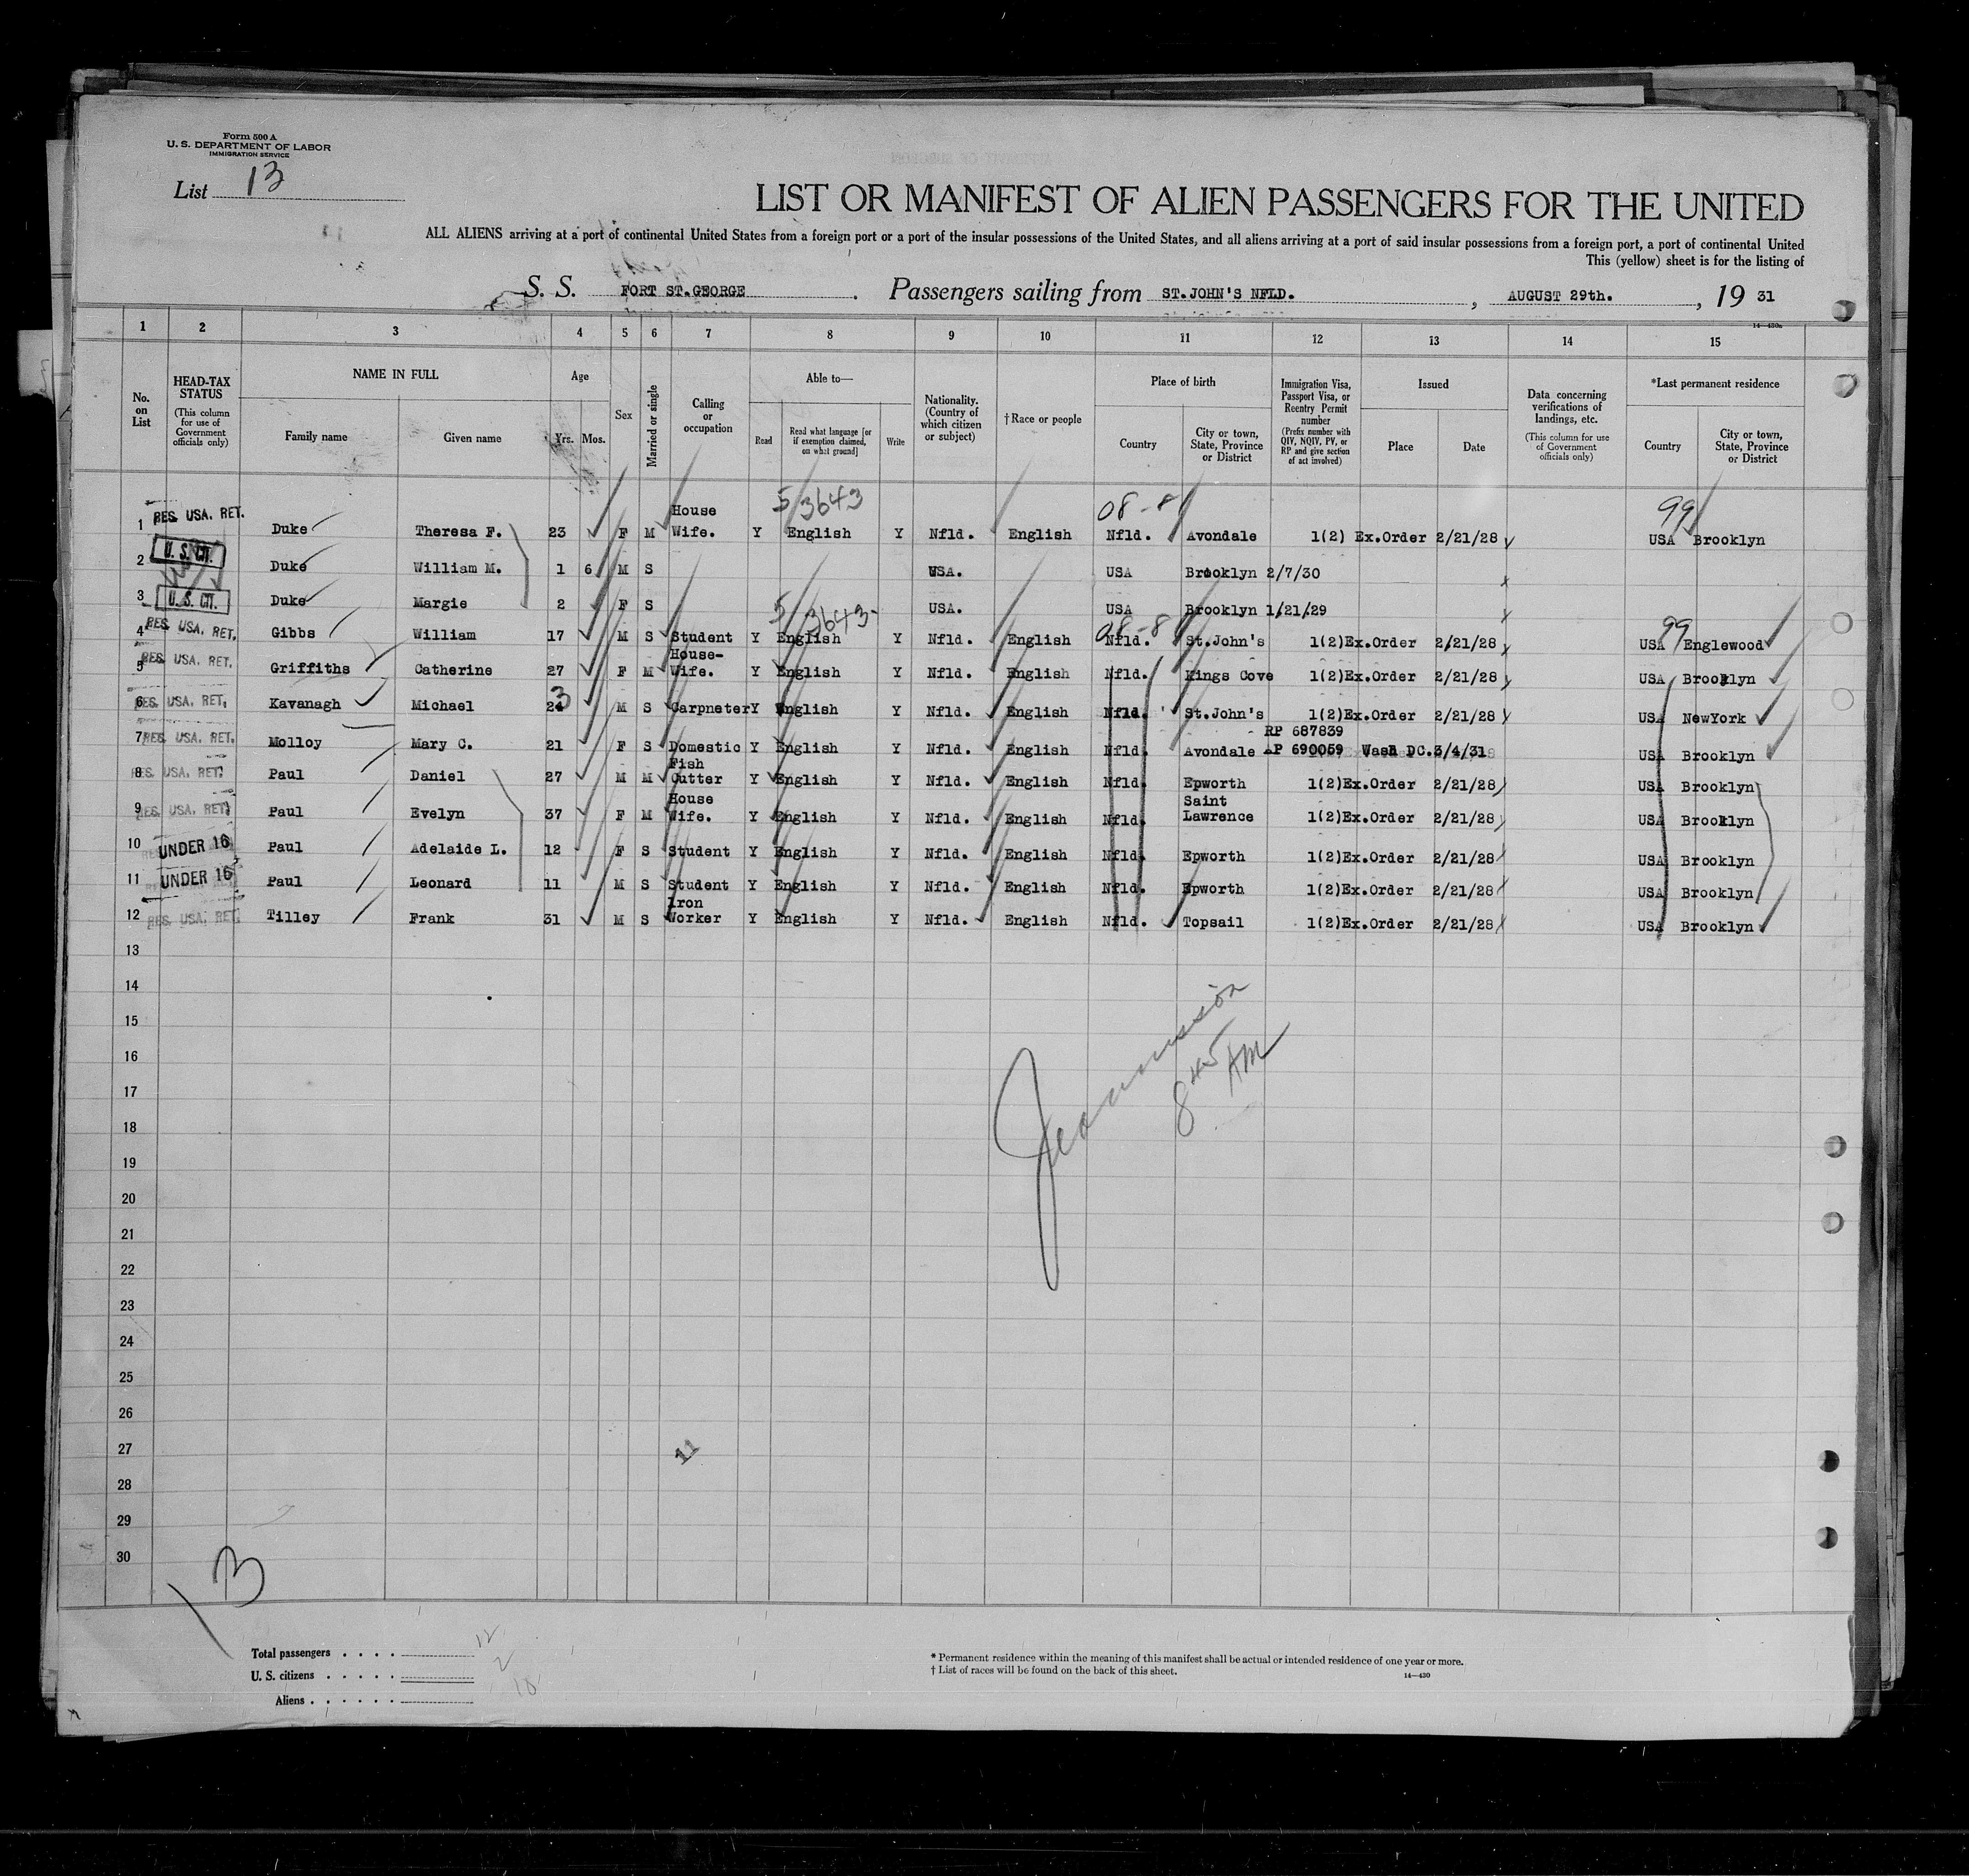 Form 500 A
U. S. DEPARTMENT OF LABOR
IMMIGRATION SERVICE
List 13
LIST OR MANIFEST OF ALIEN PASSENGERS FOR THE UNITED
ALL ALIENS arriving at a port of continental United States from a foreign port or a port of the insular possessions of the United States, and all aliens arriving at a port of said insular possessions from a foreign port, a port of continental United
This (yellow) sheet is for the listing of
S. S. FORT ST.GEORGE . Passengers sailing from ST.JOHN'S NFLD. , AUGUST 29th. , 19 31
14—430a
1 2 3 4 5 6 7 8 9 10 11 12 13 14 15
No. on List
HEAD-TAX STATUS
(This column for use of Government officials only)
NAME IN FULL
Family name Given name
Age
Yrs. Mos.
Sex
Married or single
Calling or occupation
Able to—
Read
Read what language [or if exemption claimed, on what ground]
Write
Nationality. (Country of which citizen or subject)
† Race or people
Place of birth
Country
City or town, State, Province or District
Immigration Visa, Passport Visa, or Reentry Permit number
(Prefix number with QIV, NQIV, PV, or RP and give section of act involved)
Issued
Place Date
Data concerning verifications of landings, etc.
(This column for use of Government officials only)
*Last permanent residence
Country
City or town, State, Province or District
5/3643 08-8 99
1 RES. USA. RET. Duke Theresa F. 23 F M House Wife. Y English Y Nfld. English Nfld. Avondale 1(2) Ex.Order 2/21/28 USA Brooklyn
2 U. S. CIT. Duke William M. 1 6 M S USA. USA Brooklyn 2/7/30
3 U. S. CIT. Duke Margie 2 F S USA. USA Brooklyn 1/21/29
5/3643 08-8 99
4 RES. USA. RET. Gibbs William 17 M S Student Y English Y Nfld. English Nfld. St.John's 1(2)Ex.Order 2/21/28 USA Englewood
5 RES. USA. RET. Griffiths Catherine 27 F M House-Wife. Y English Y Nfld. English Nfld. Kings Cove 1(2)Ex.Order 2/21/28 USA Brooklyn
6 RES. USA. RET. Kavanagh Michael 23 M S Carpneter Y English Y Nfld. English Nfld. St.John's 1(2)Ex.Order 2/21/28 USA NewYork
RP 687839
7 RES. USA. RET. Molloy Mary C. 21 F S Domestic Y English Y Nfld. English Nfld. Avondale RP 690059 Wash DC. 3/4/31 USA Brooklyn
8 RES. USA. RET. Paul Daniel 27 M M Fish Cutter Y English Y Nfld. English Nfld. Epworth 1(2)Ex.Order 2/21/28 USA Brooklyn
9 RES. USA. RET. Paul Evelyn 37 F M House Wife. Y English Y Nfld. English Nfld. Saint Lawrence 1(2)Ex.Order 2/21/28 USA Brooklyn
10 UNDER 16 Paul Adelaide L. 12 F S Student Y English Y Nfld. English Nfld. Epworth 1(2)Ex.Order 2/21/28 USA Brooklyn
11 UNDER 16 Paul Leonard 11 M S Student Y English Y Nfld. English Nfld. Epworth 1(2)Ex.Order 2/21/28 USA Brooklyn
12 RES. USA. RET. Tilley Frank 31 M S Iron Worker Y English Y Nfld. English Nfld. Topsail 1(2)Ex.Order 2/21/28 USA Brooklyn
13
14
15
16
8 45 AM
17
18
19
20
21
22
23
24
25
26
27
11
28
29
30
13
Total passengers . . . . 12
U. S. citizens . . . . . 2
Aliens . . . . . . 10
* Permanent residence within the meaning of this manifest shall be actual or intended residence of one year or more.
† List of races will be found on the back of this sheet.
14—430